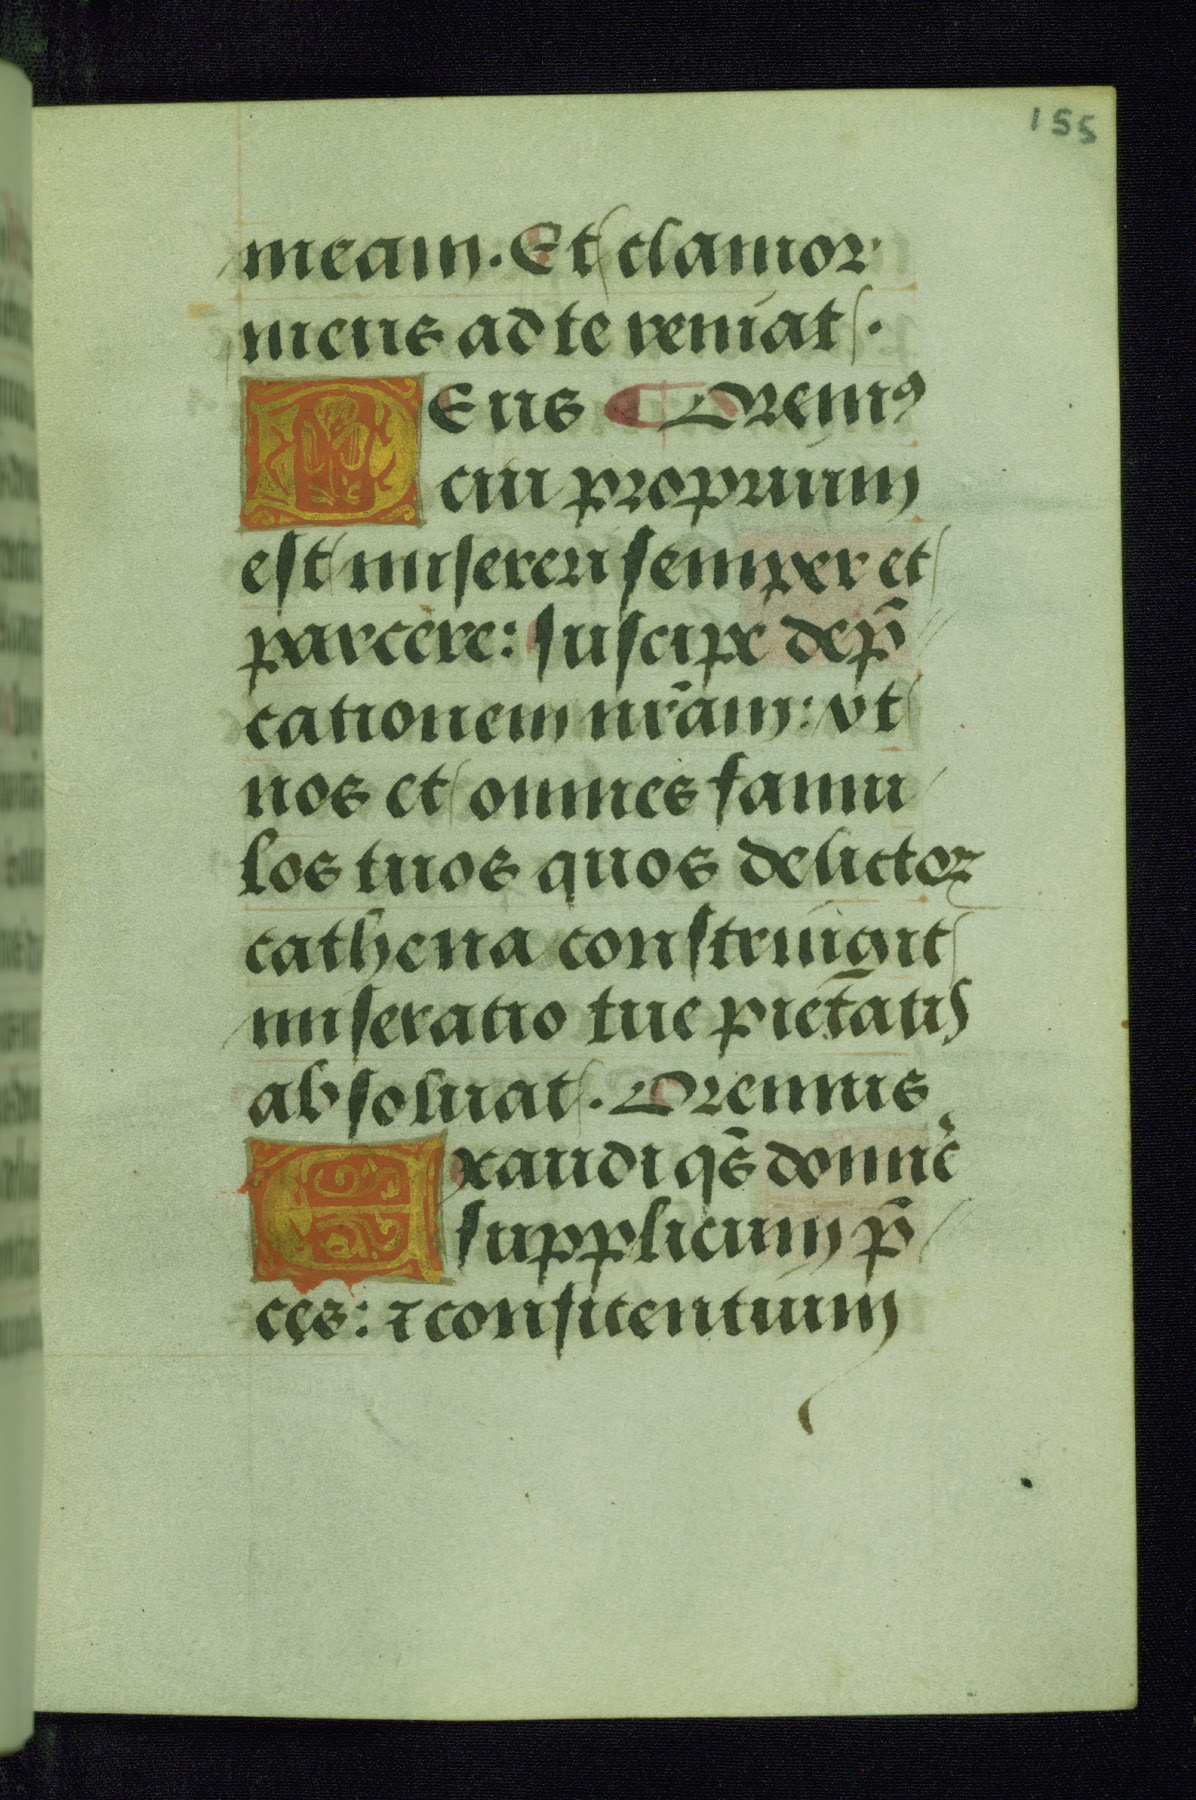 155
meam. Et clamor
meus ad te veniat.
DEus ¶ Oremꝰ
cui proprium
est misereri semper et
parcere: suscipe dep̄
cationem nr̄am: vt
nos et omnes famu
los tuos quos delictoꝝ
cathena constringit
miseratio tue piet̄atis
absoluat. Oremus
Exaudi qs̄ domine
supplicum p̄
ces: ⁊ confitentium